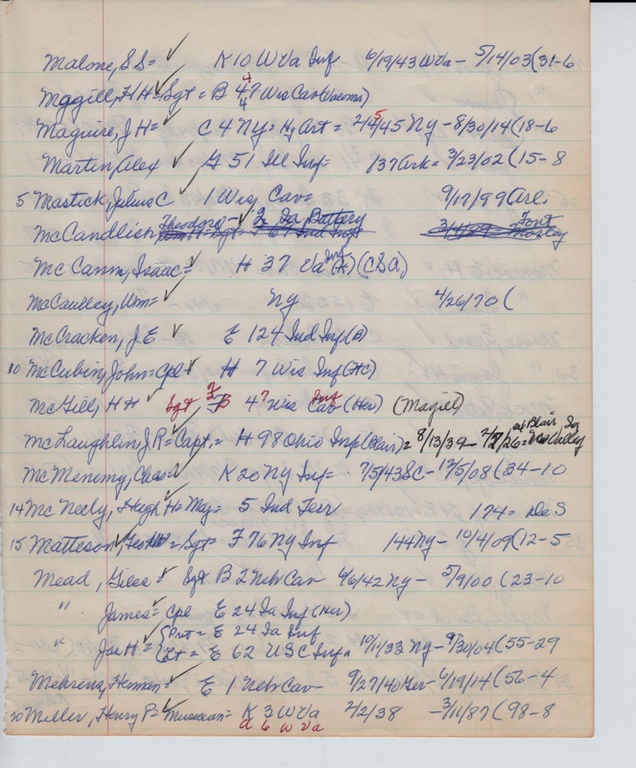 Malone, S S= ✓ K 10 W Va Inf 6/19/43 W Va - 5/14/03 (31-6
Magill, H H= Sgt = B 47 Wis Cav (Vacoma)
Maguire, J H= C 4 Ny = Hy Art = 2/4/45 Ny - 8/30/14 (18-6
Martin, Alex ✓ G 51 Ill Inf= 137 Ark = 3/23/02 (15-8
5 Mastick, Julius C ✓ 1 Wis Cav= 9/17/99 (Arl.
McCandlish, Theodore - 2 Ia Battery Fort
McCann, Isaac= ✓ H 37 Va Inf (A) (CSA)
McCaulley, Wm= ✓ Ny 4/26/70 (
McCracken, J E ✓ E 124 Ind Inf (B)
10 McCubin, John = Cpl ✓ H 7 Wis Inf (HC)
McGill, H H Sgt B 47 Wis Cav Inf (Her) (Magill)
McLaughlin, J R = Capt. = H 98 Ohio Inf (Blair) = 8/13/39 - 2/7/26 = at Blair
McMenemy, Chas= ✓ K 20 Ny Inf= 7/5/43 SC - 12/5/08 (34-10
14 McNeely, Hugh H= Maj = 5 Ind Teer 174 = Des
15 Matteson, = Sgt = F 76 Ny Inf 144 Ny - 10/4/09 (12-5
Mead, Giles = ✓ Sgt B 2 Neb Cav 6/6/42 Ny - 5/9/00 (23-10
" James = Cpl E 24 Ia Inf (Her)
" Jas H = ✓ { Pvt = E 24 Ia Inf
Lt = E 62 USC Inf = 10/11/33 Ny - 9/30/04 (55-29
Mehrens, Herman = ✓ E 1 Neb Cav - 9/27/40 Ger - 6/19/14 (56-4
20 Miller, Henry P = ✓ Musician = K 3 W Va 2/2/38 - 3/11/87 (98-8
a 6 W Va